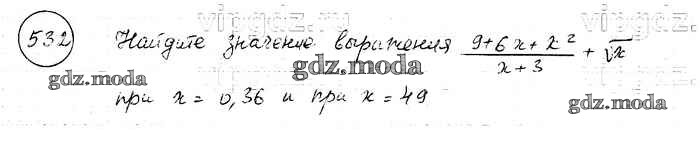 vipgdz.ru
vipgdz.ru
532 Найдите значение выражения (9+6x+x²)/(x+3) + √x
gdz.moda
gdz.moda
gdz.moda
при x = 0,36 и при x = 49